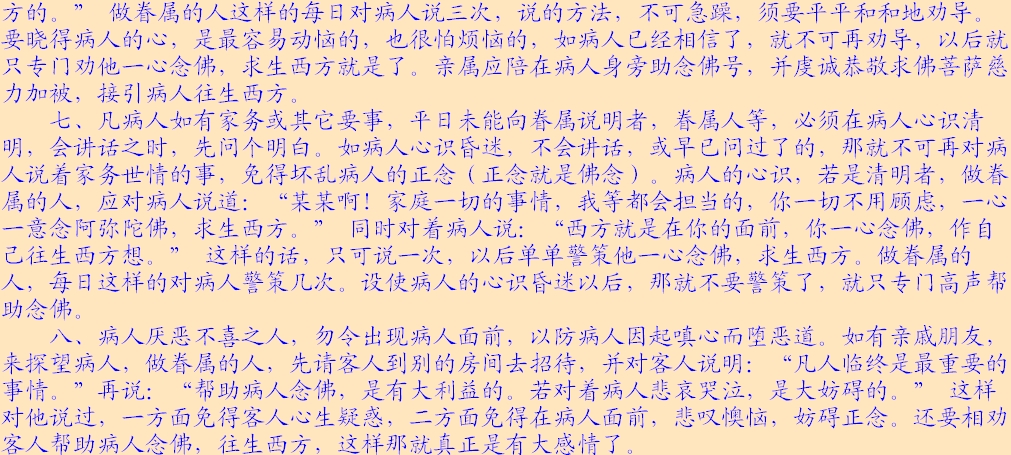 方的。” 做眷属的人这样的每日对病人说三次，说的方法，不可急躁，须要平平和和地劝导。
要晓得病人的心，是最容易动恼的，也很怕烦恼的，如病人已经相信了，就不可再劝导，以后就
只专门劝他一心念佛，求生西方就是了。亲属应陪在病人身旁助念佛号，并虔诚恭敬求佛菩萨慈
力加被，接引病人往生西方。
七、凡病人如有家务或其它要事，平日未能向眷属说明者，眷属人等，必须在病人心识清
明，会讲话之时，先问个明白。如病人心识昏迷，不会讲话，或早已问过了的，那就不可再对病
人说着家务世情的事，免得坏乱病人的正念（正念就是佛念）。病人的心识，若是清明者，做眷
属的人，应对病人说道：“某某啊！家庭一切的事情，我等都会担当的，你一切不用顾虑，一心
一意念阿弥陀佛，求生西方。” 同时对着病人说：“西方就是在你的面前，你一心念佛，作自
己往生西方想。” 这样的话，只可说一次，以后单单警策他一心念佛，求生西方。做眷属的
人，每日这样的对病人警策几次。设使病人的心识昏迷以后，那就不要警策了，就只专门高声帮
助念佛。
八、病人厌恶不喜之人，勿令出现病人面前，以防病人因起嗔心而堕恶道。如有亲戚朋友，
来探望病人，做眷属的人，先请客人到别的房间去招待，并对客人说明：“凡人临终是最重要的
事情。”再说：“帮助病人念佛，是有大利益的。若对着病人悲哀哭泣，是大妨碍的。” 这样
对他说过，一方面免得客人心生疑惑，二方面免得在病人面前，悲叹懊恼，妨碍正念。还要相劝
客人帮助病人念佛，往生西方，这样那就真正是有大感情了。